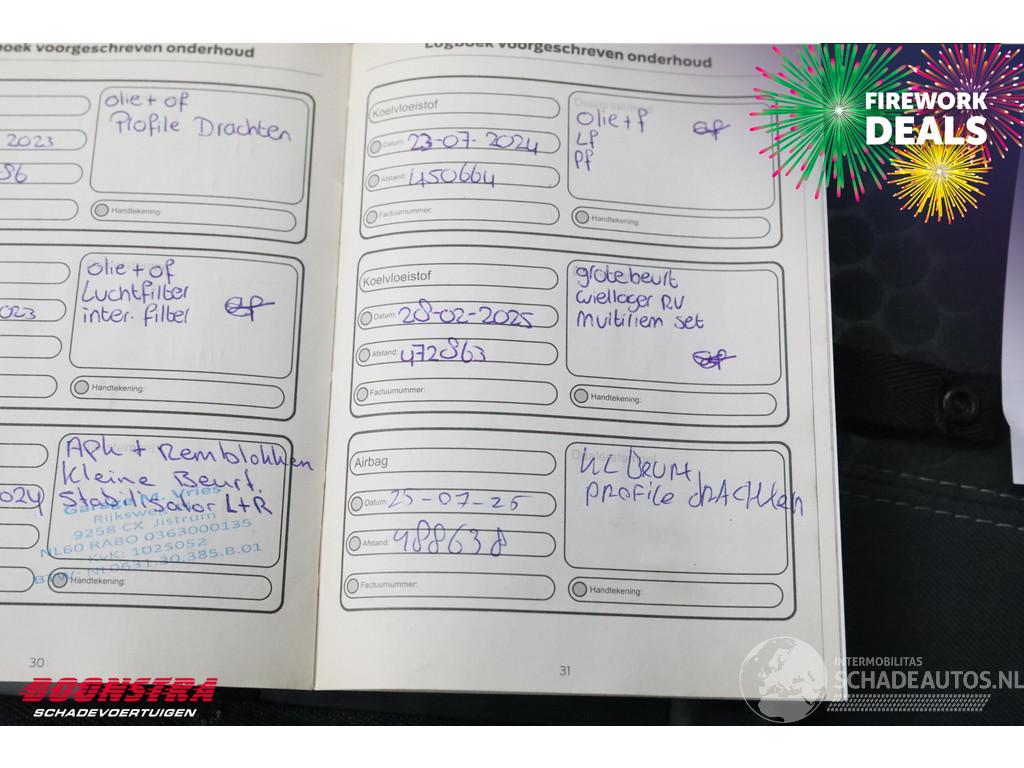 Logboek voorgeschreven onderhoud
olie + of
Profile Drachten
2023
Handtekening:
olie + of
Luchtfilter
inter. filter
Handtekening:
APK + Remblokken
Kleine Beurt.
Stabilisator L+R
Rijksweg
9258 CX Jistrum
NL60 RABO 0363000135
KvK: 1025052
Handtekening:
30
Logboek voorgeschreven onderhoud
Koelvloeistof
Datum: 23-07-2024
Afstand: 450664
Factuurnummer:
olie + f
Lf
pf
Handtekening:
Koelvloeistof
Datum: 28-02-2025
Afstand: 472863
Factuurnummer:
grote beurt
wiellager RV
Multiriem set
Handtekening:
Airbag
Datum: 25-07-25
Afstand: 488638
Factuurnummer:
KL Beurt
Profile drachten
Handtekening:
31
FIREWORK
DEALS
BOONSTRA
SCHADEVOERTUIGEN
INTERMOBILITAS
SCHADEAUTOS.NL